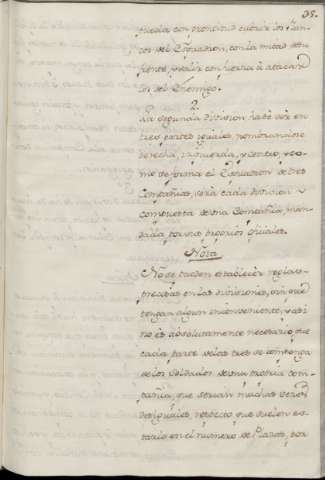 35.
pueda con prontitud cubrir los flan-
cos del Esquadron, con la mitad de su
frente, y salir con fuerza à atacar
los del Enemigo.
2.
La segunda division ha de ser en
tres partes iguales, nombrandose
derecha, izquierda, y centro, y co-
mo se forma el Esquadron de tres
Compañias, será cada division
compuesta de una Compañia, man-
dada por sus propios oficiales.
Nota
No se pueden establecer reglas
precisas en las divisiones, sin que
tengan algun inconveniente, y asi
no es absolutamente necesario, que
cada parte de las tres se componga
de los Soldados de una misma com-
pañia, que seràn muchas veces
desiguales, respecto que suelen es-
tarlo en el numero de Plazas, por